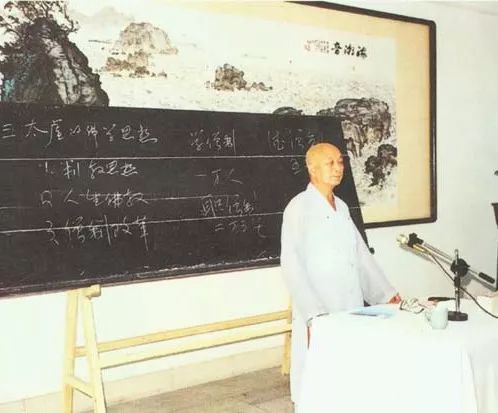 海潮音
三 太虚的佛学思想
判教思想
人生佛教
僧制改革
学僧制
一万人
僧制
二万五千